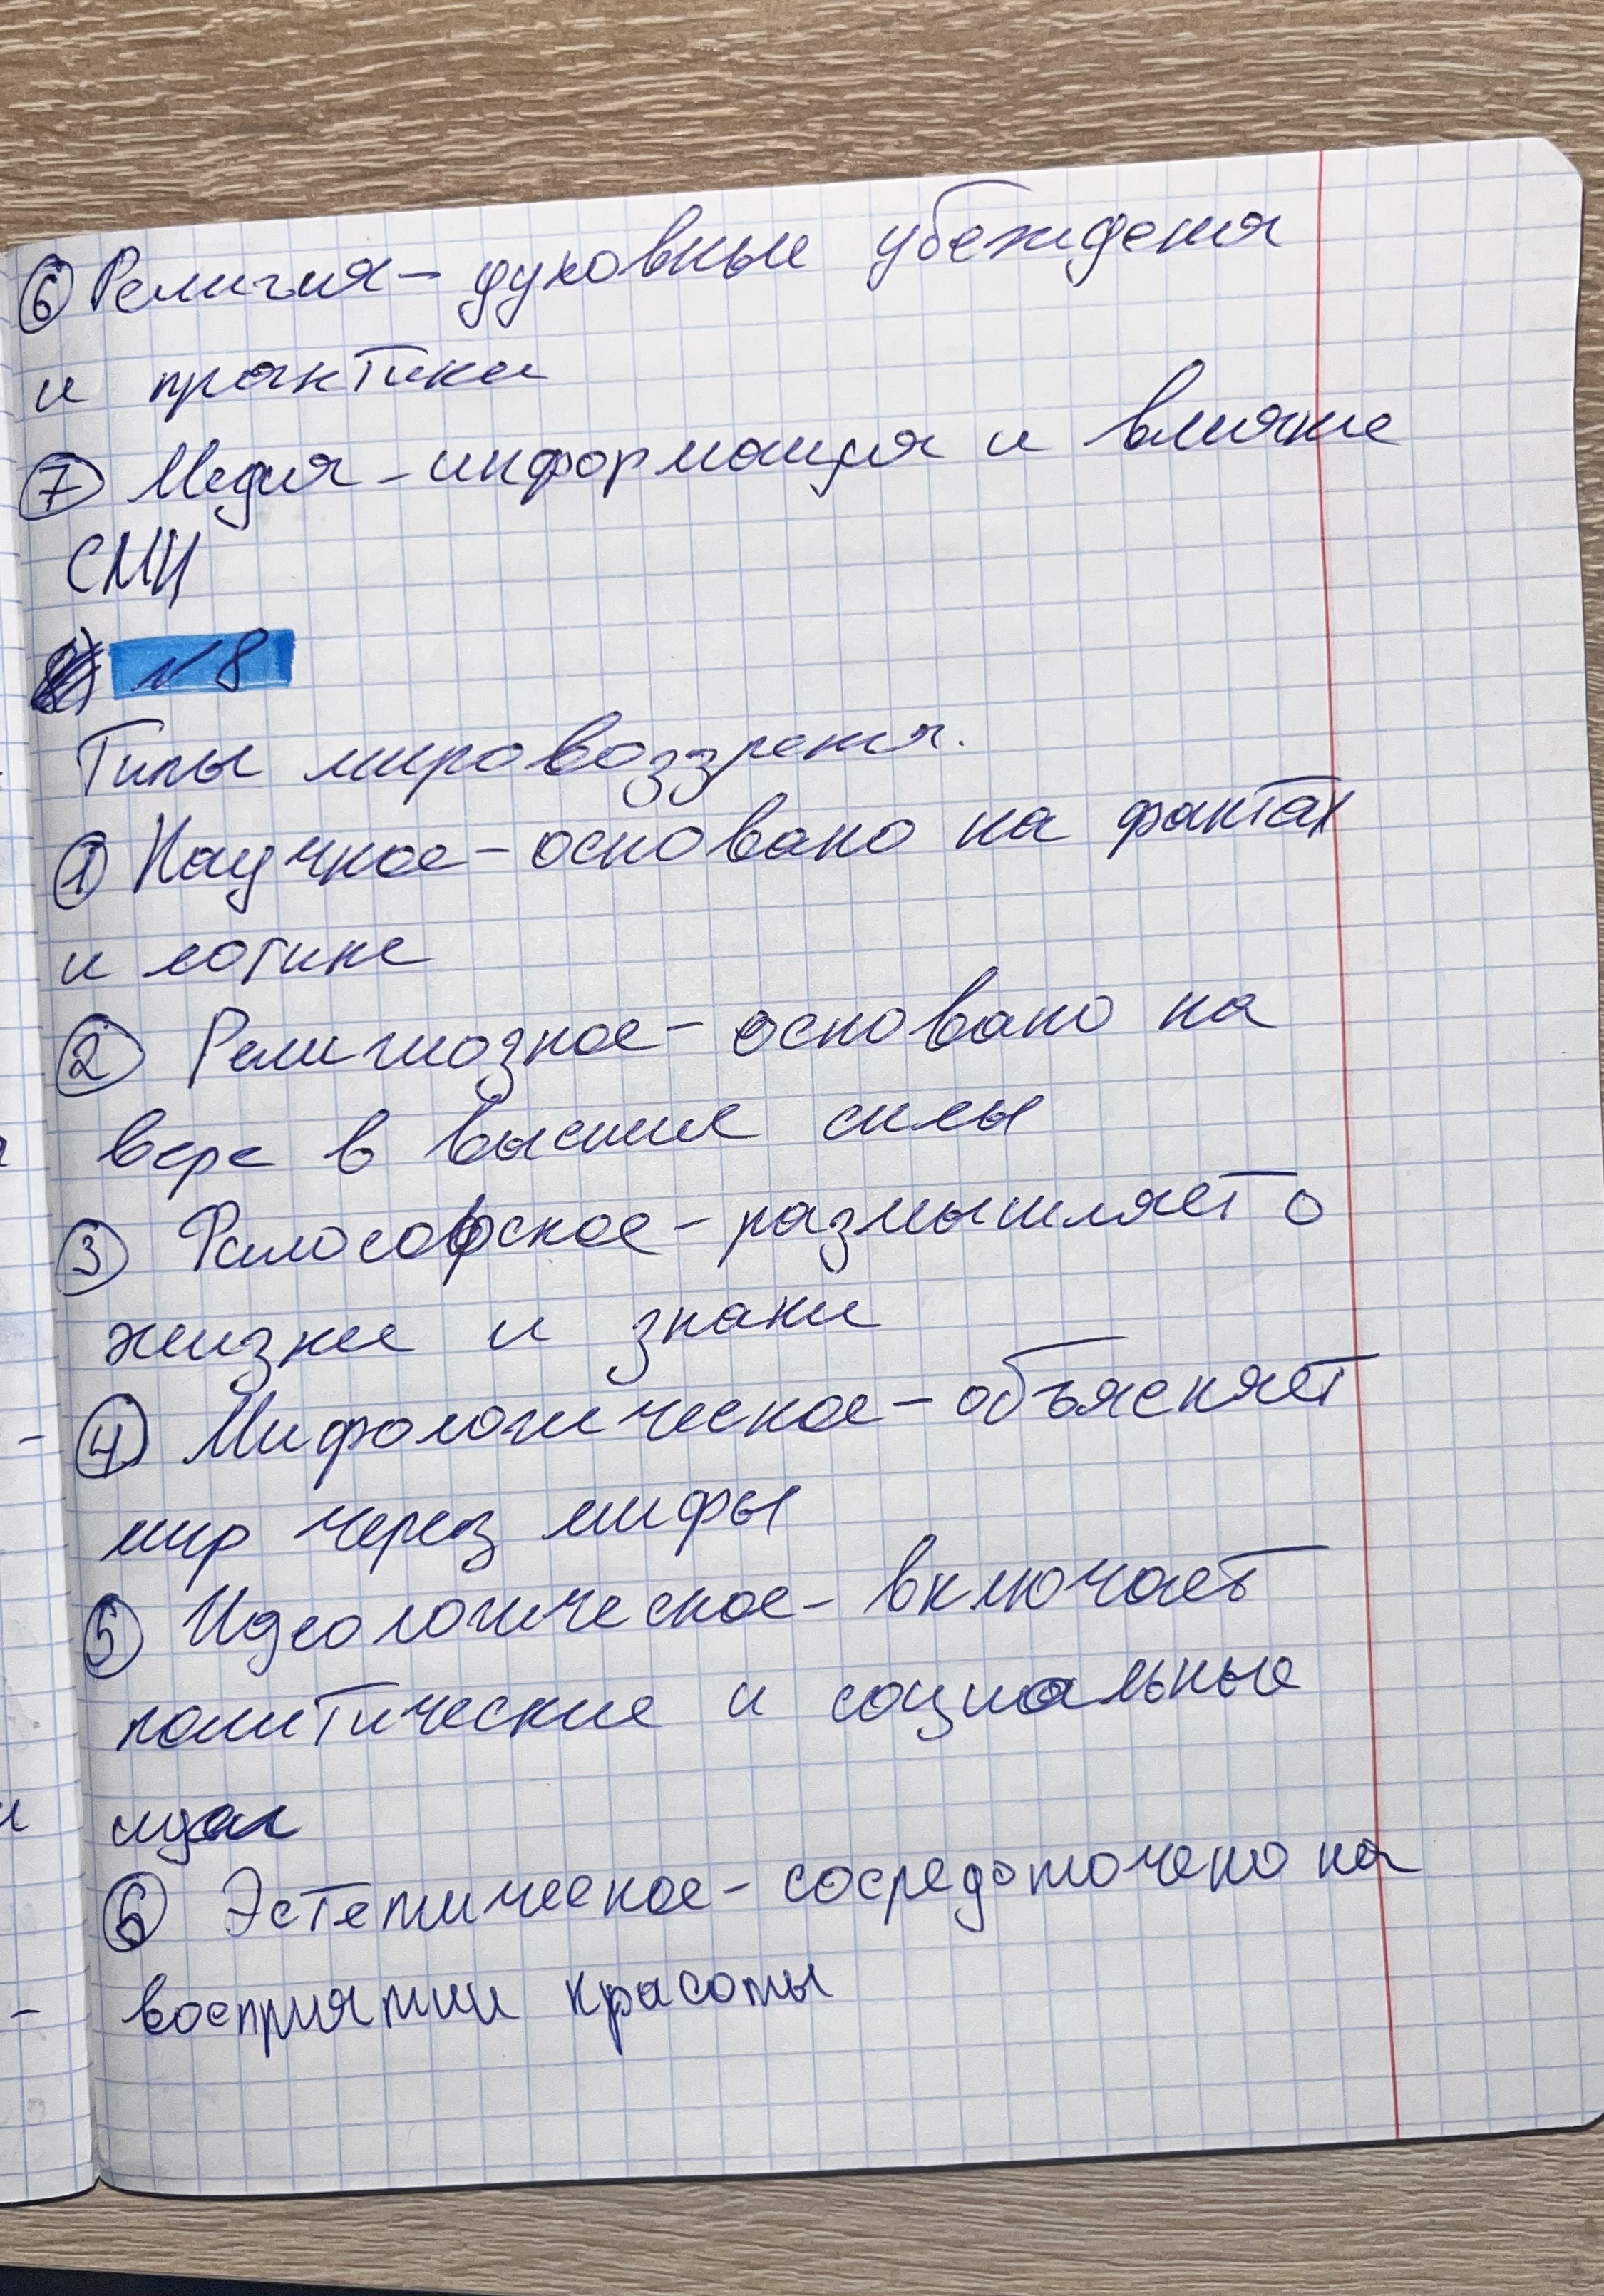 ⑥ Религия – духовные убеждения
и практики
⑦ Медия – информация и влияние
СМИ
№8
Типы мировоззрения.
① Научное – основано на фактах
и логике
② Религиозное – основано на
вере в высшие силы
③ Философское – размышляет о
жизни и знани
④ Мифологическое – объясняет
мир через мифы
⑤ Идеологическое – включает
политические и социальные
⑥ Эстетическое – сосредоточено на
восприятии красоты